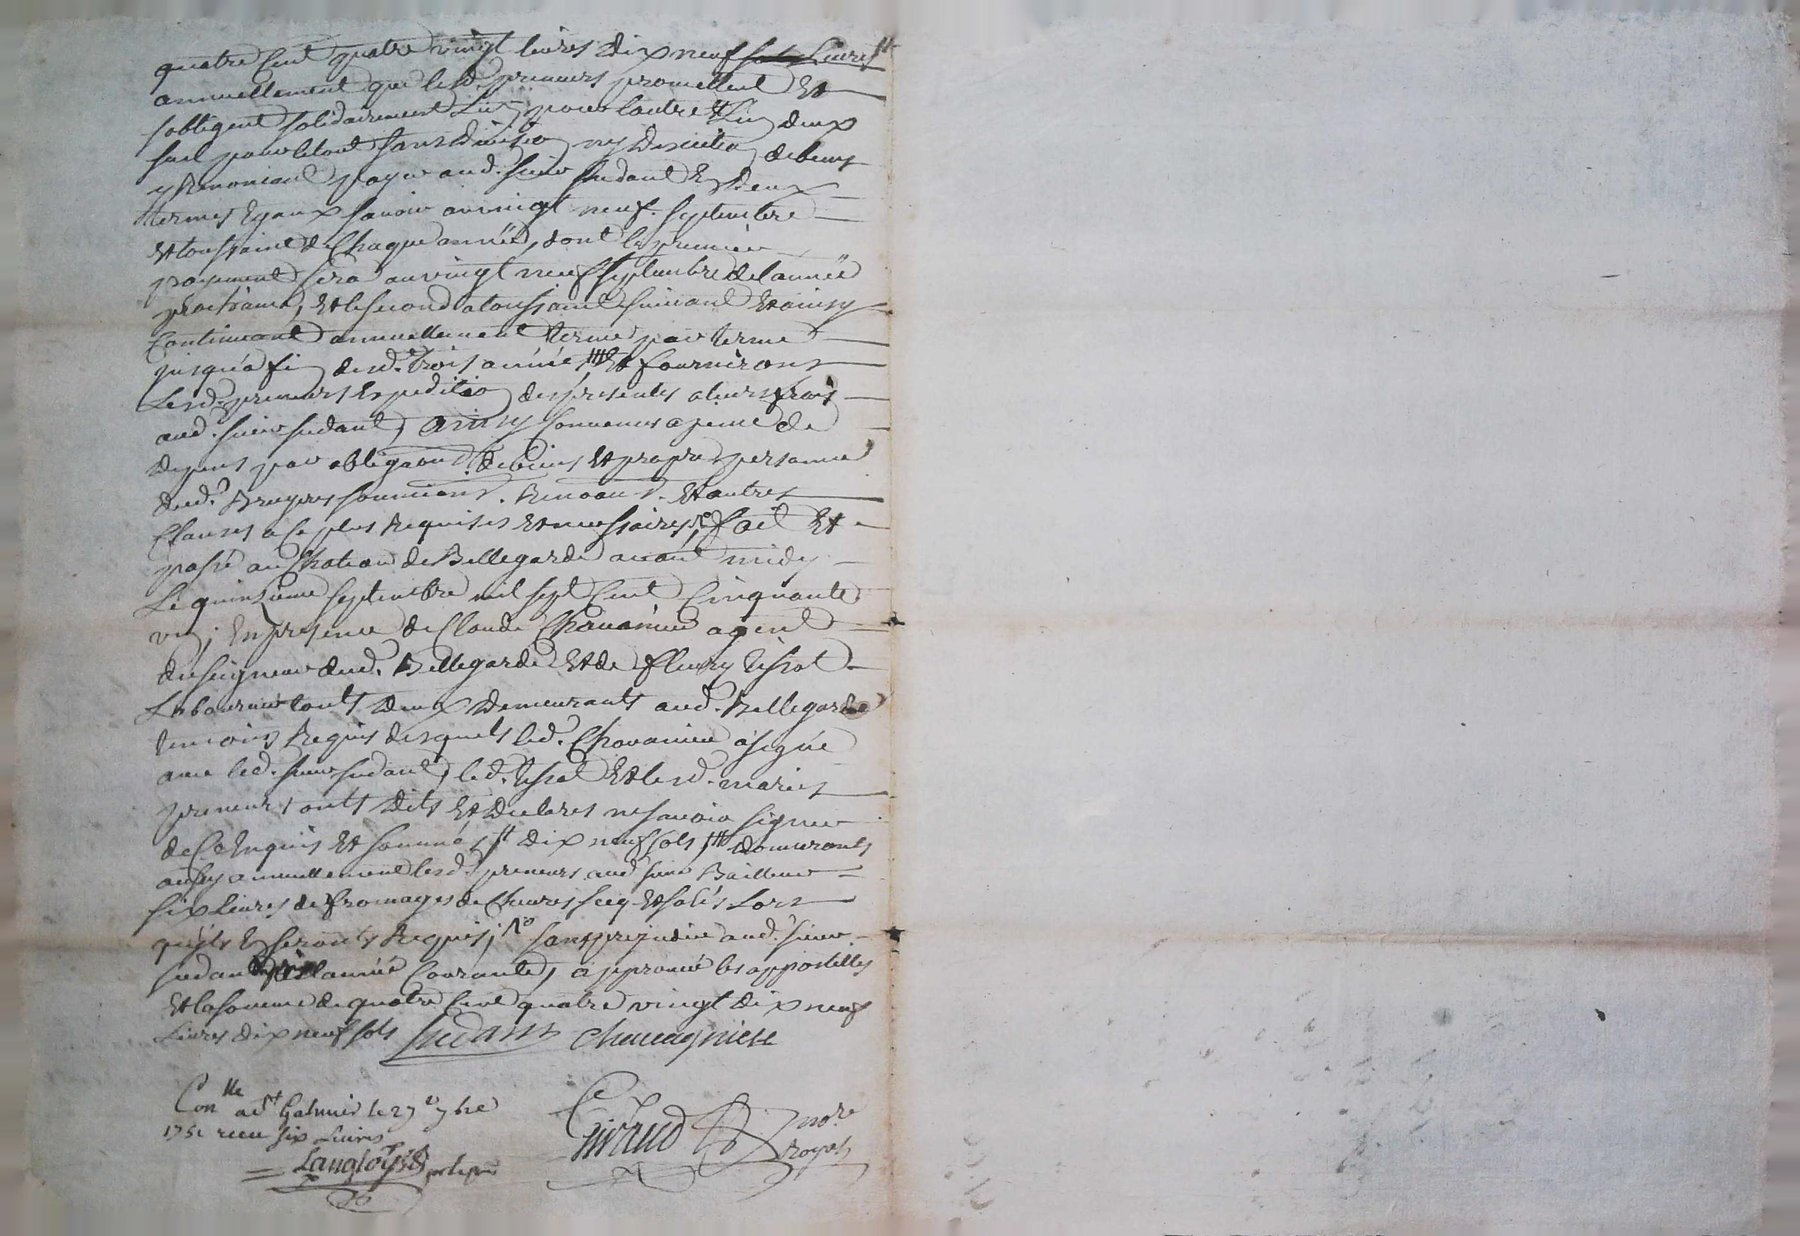 quatre Cent quatre vingt livres dix neuf sols Livres
annuellement que lesd. preneurs promettent Et
sobligent solidairement L'un pour lautre Et L'un deux
seul pour le tout sans division ny discution de biens
y Renoncant payer aud. sieur Sudant En deux
termes Egaux savoir au vingt neuf. septembre
Et toussaint de Chaque année, dont le premier
payement sera au vingt neuf septembre de l'année
prochaine, Et le second a toussaint suivant Et ainsy
Continuant annuellement terme par terme
jusqu'a fin desd. trois année Et fourniront
Lesd. preneurs Expedition des presentes a leurs frais
aud. sieur Sudant, ainsy Convenus a peine de
depens par obligaons de biens Et propre personne
dud. Bruyere soumissions. Renoaons. Et autres
Clauses a Ce plus Requises Et necessaires, fait Et
passé au Chateau de Bellegarde avant midy
Le quinzieme septembre mil sept Cent Cinquante
un; En presence de Claude Chavanieu agent
du seigneur dud. Bellegarde Et de fleury tissot
Laboureur touts deux demeurants aud. Bellegarde
temoins Requis desquels led. Chavanieu a signé
avec led. sieur Sudant, led. tissot Et lesd. mariés
preneurs onts dits Et declarés ne savoir signer
de Ce Enquis Et sommés, dix neuf sols donneronts
aussy annuellement lesd. preneurs aud. sieur Bailleur
six Livres de fromages de Chevres secq Et salés Lors
qu'ils En seronts Requis; sans prejudice aud. sieur
Sudant de l'année Courante, approuvé les appostilles
Et la somme de quatre Cent quatre vingt dix neuf
Livres dix neuf sols Sudant Chavagnieu
Conlle a st Galmier le 27e 7bre
1751 receu six Livres
Langlois
Giraud nore
Royal